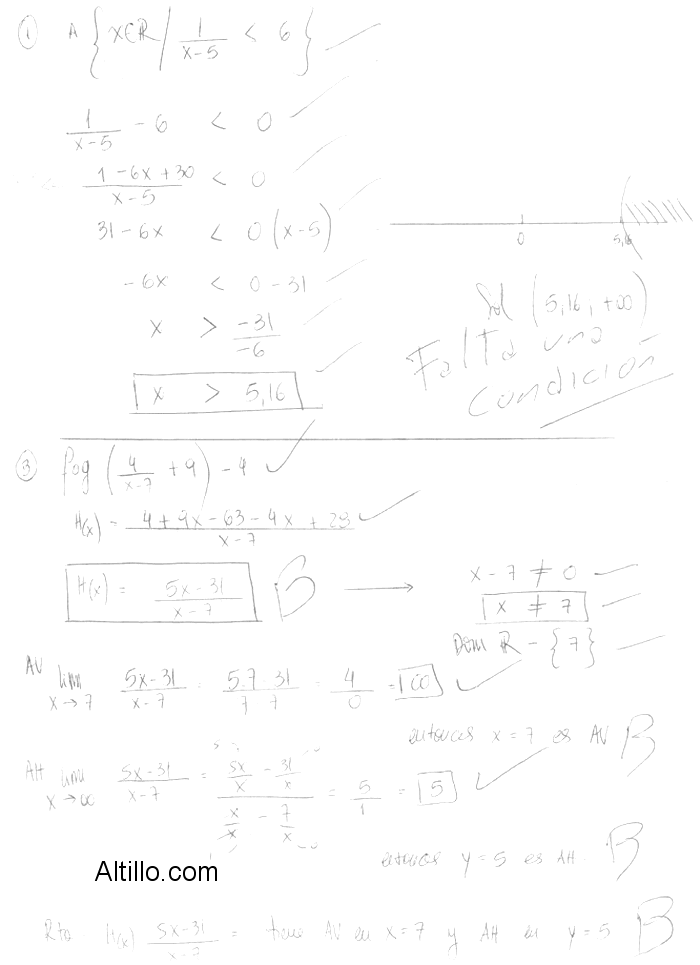 ① A {x∈ℝ / 1/(x-5) < 6}
1/(x-5) - 6 < 0
(1-6x+30)/(x-5) < 0
31-6x < 0 (x-5)
-6x < 0-31
x > -31/-6
x > 5,16
0 5,16
Sol (5,16, +∞)
Falta una
condición
③ fog (4/(x-7) + 9) - 4
H(x) = (4+9x-63-4x+28)/(x-7)
H(x) = (5x-31)/(x-7) B → x-7 ≠ 0
x ≠ 7
Dom ℝ - {7}
AV lim x→7 (5x-31)/(x-7) = (5.7 31)/(7 7) = 4/0 = ∞
entonces x=7 es AV B
AH lim x→∞ (5x-31)/(x-7) = (5x/x - 31/x)/(x/x - 7/x) = 5/1 = 5
entonces y=5 es AH. B
Altillo.com
Rta H(x) (5x-31)/(x-7) = tiene AV en x=7 y AH en y=5 B